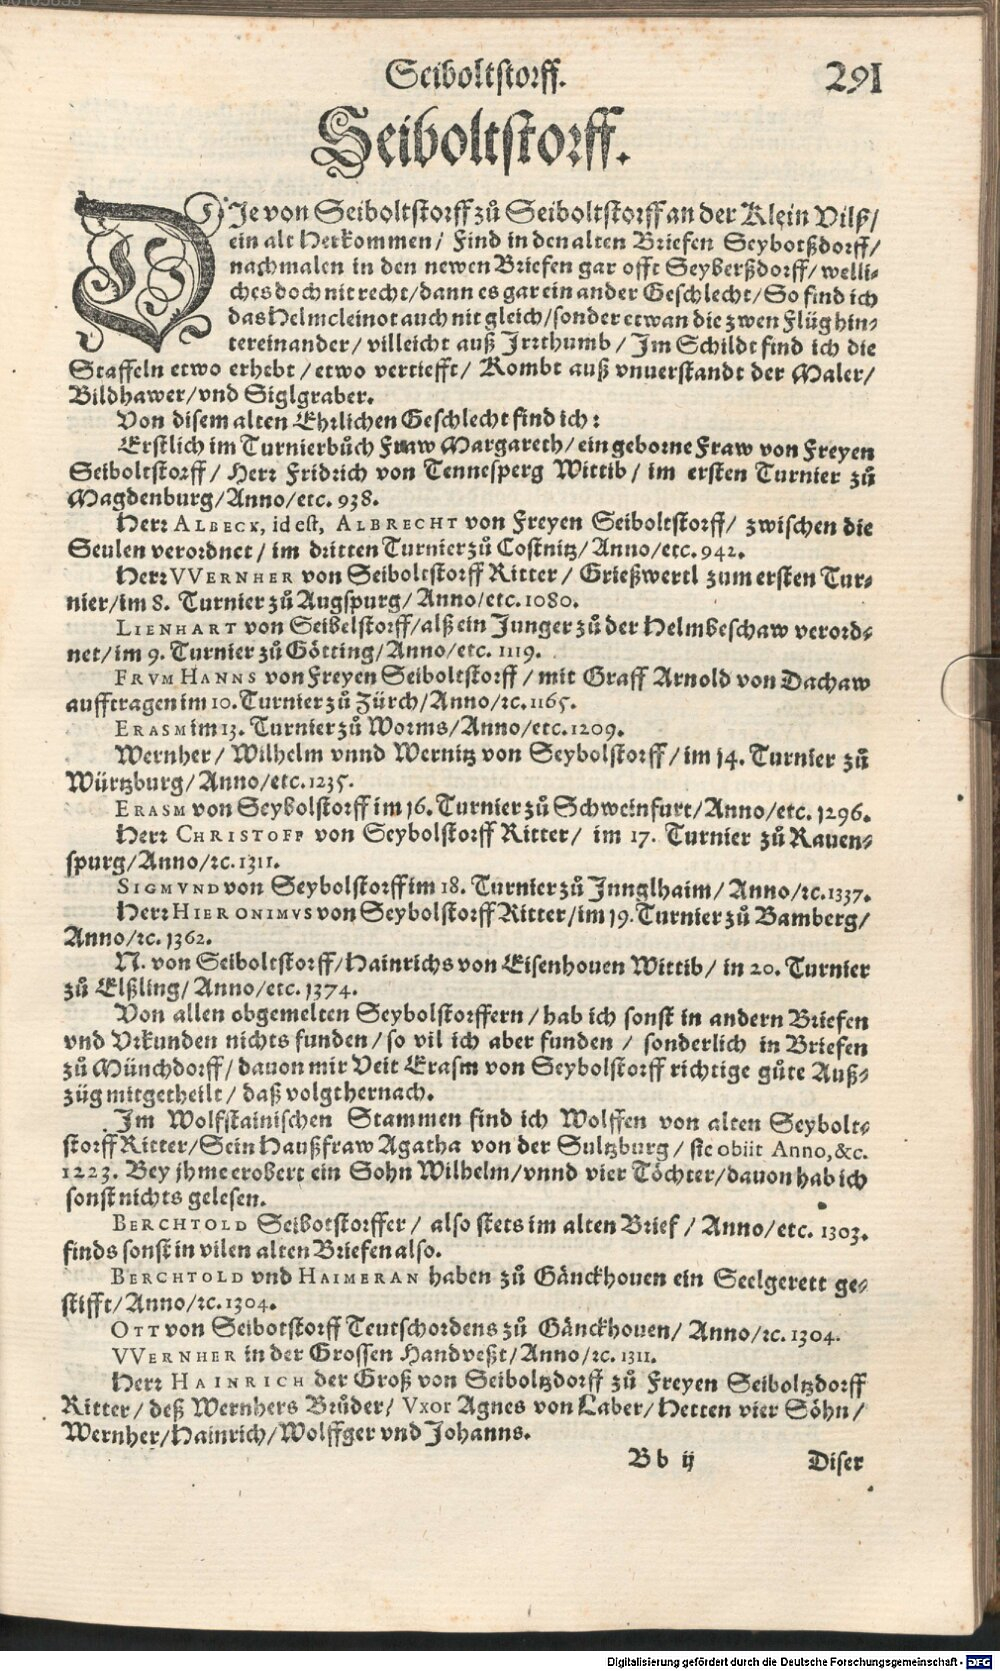 Seiboltstorff. 291
Seiboltstorff.
DJe von Seiboltstorff zů Seiboltstorff an der Klein Vilß/
ein alt Herkommen/ Find in den alten Briefen Seybotßdorff/
nachmalen in den newen Briefen gar offt Seyberßdorff/ welli-
ches doch nit recht/ dann es gar ein ander Geschlecht/ So find ich
das Helmcleinot auch nit gleich/ sonder etwan die zwen Flüg hin-
tereinander/ villeicht auß Jrrthumb/ Jm Schildt find ich die
Staffeln etwo erhebt/ etwo vertiefft/ Kombt auß vnuerstandt der Maler/
Bildhawer/ vnd Siglgraber.
Von disem alten Ehrlichen Geschlecht find ich:
Erstlich im Turnierbůch Fraw Margareth/ ein geborne Fraw von Freyen
Seiboltstorff/ Herr Fridrich von Tennesperg Wittib/ im ersten Turnier zů
Magdenburg/ Anno/ etc. 938.
Herr ALBECK, id est, ALBRECHT von Freyen Seiboltstorff/ zwischen die
Seulen verordnet/ im dritten Turnier zů Costnitz/ Anno/ etc. 942.
Herr VVERNHER von Seiboltstorff Ritter/ Grießwertl zum ersten Tur-
nier/ im 8. Turnier zů Augspurg/ Anno/ etc. 1080.
LIENHART von Seibelstorff/ alß ein Junger zů der Helmbeschaw verord-
net/ im 9. Turnier zů Götting/ Anno/ etc. 1119.
FRVM HANNS von Freyen Seiboltstorff/ mit Graff Arnold von Dachaw
aufftragen im 10. Turnier zů Zürch/ Anno/ ꝛc. 1165.
ERASM im 13. Turnier zů Worms/ Anno/ etc. 1209.
Wernher/ Wilhelm vnnd Wernitz von Seybolstorff/ im 14. Turnier zů
Würtzburg/ Anno/ etc. 1235.
ERASM von Seybolstorff im 16. Turnier zů Schweinfurt/ Anno/ etc. 1296.
Herr CHRISTOFF von Seybolstorff Ritter/ im 17. Turnier zů Rauen-
spurg/ Anno/ ꝛc. 1311.
SIGMVND von Seybolstorff im 18. Turnier zů Jnnglhaim/ Anno/ ꝛc. 1337.
Herr HIERONIMVS von Seybolstorff Ritter/ im 19. Turnier zů Bamberg/
Anno/ ꝛc. 1362.
N. von Seiboltstorff/ Hainrichs von Eisenhouen Wittib/ in 20. Turnier
zů Elßling/ Anno/ etc. 1374.
Von allen obgemelten Seybolstorffern/ hab ich sonst in andern Briefen
vnd Vrkunden nichts funden/ so vil ich aber funden/ sonderlich in Briefen
zů Münchdorff/ dauon mir Veit Erasm von Seybolstorff richtige gůte Auß-
züg mitgetheilt/ daß volgt hernach.
Jm Wolfstainischen Stammen find ich Wolffen von alten Seybolt-
storff Ritter/ Sein Haußfraw Agatha von der Sultzburg/ sie obiit Anno, &c.
1223. Bey jhme erobert ein Sohn Wilhelm/ vnnd vier Töchter/ dauon hab ich
sonst nichts gelesen.
BERCHTOLD Seibotstorffer/ also stets im alten Brief/ Anno/ etc. 1303.
finds sonst in vilen alten Briefen also.
BERCHTOLD vnd HAIMERAN haben zů Gänckhouen ein Seelgerett ge-
stifft/ Anno/ ꝛc. 1304.
OTT von Seibotstorff Teutschordens zů Gänckhouen/ Anno/ ꝛc. 1304.
VVERNHER in der Grossen Handveßt/ Anno/ ꝛc. 1311.
Herr HAINRICH der Groß von Seiboltzdorff zů Freyen Seiboltzdorff
Ritter/ deß Wernhers Brůder/ Vxor Agnes von Laber/ Hetten vier Söhn/
Wernher/ Hainrich/ Wolffger vnd Johanns.
B b ij Diser
Digitalisierung gefördert durch die Deutsche Forschungsgemeinschaft - DFG